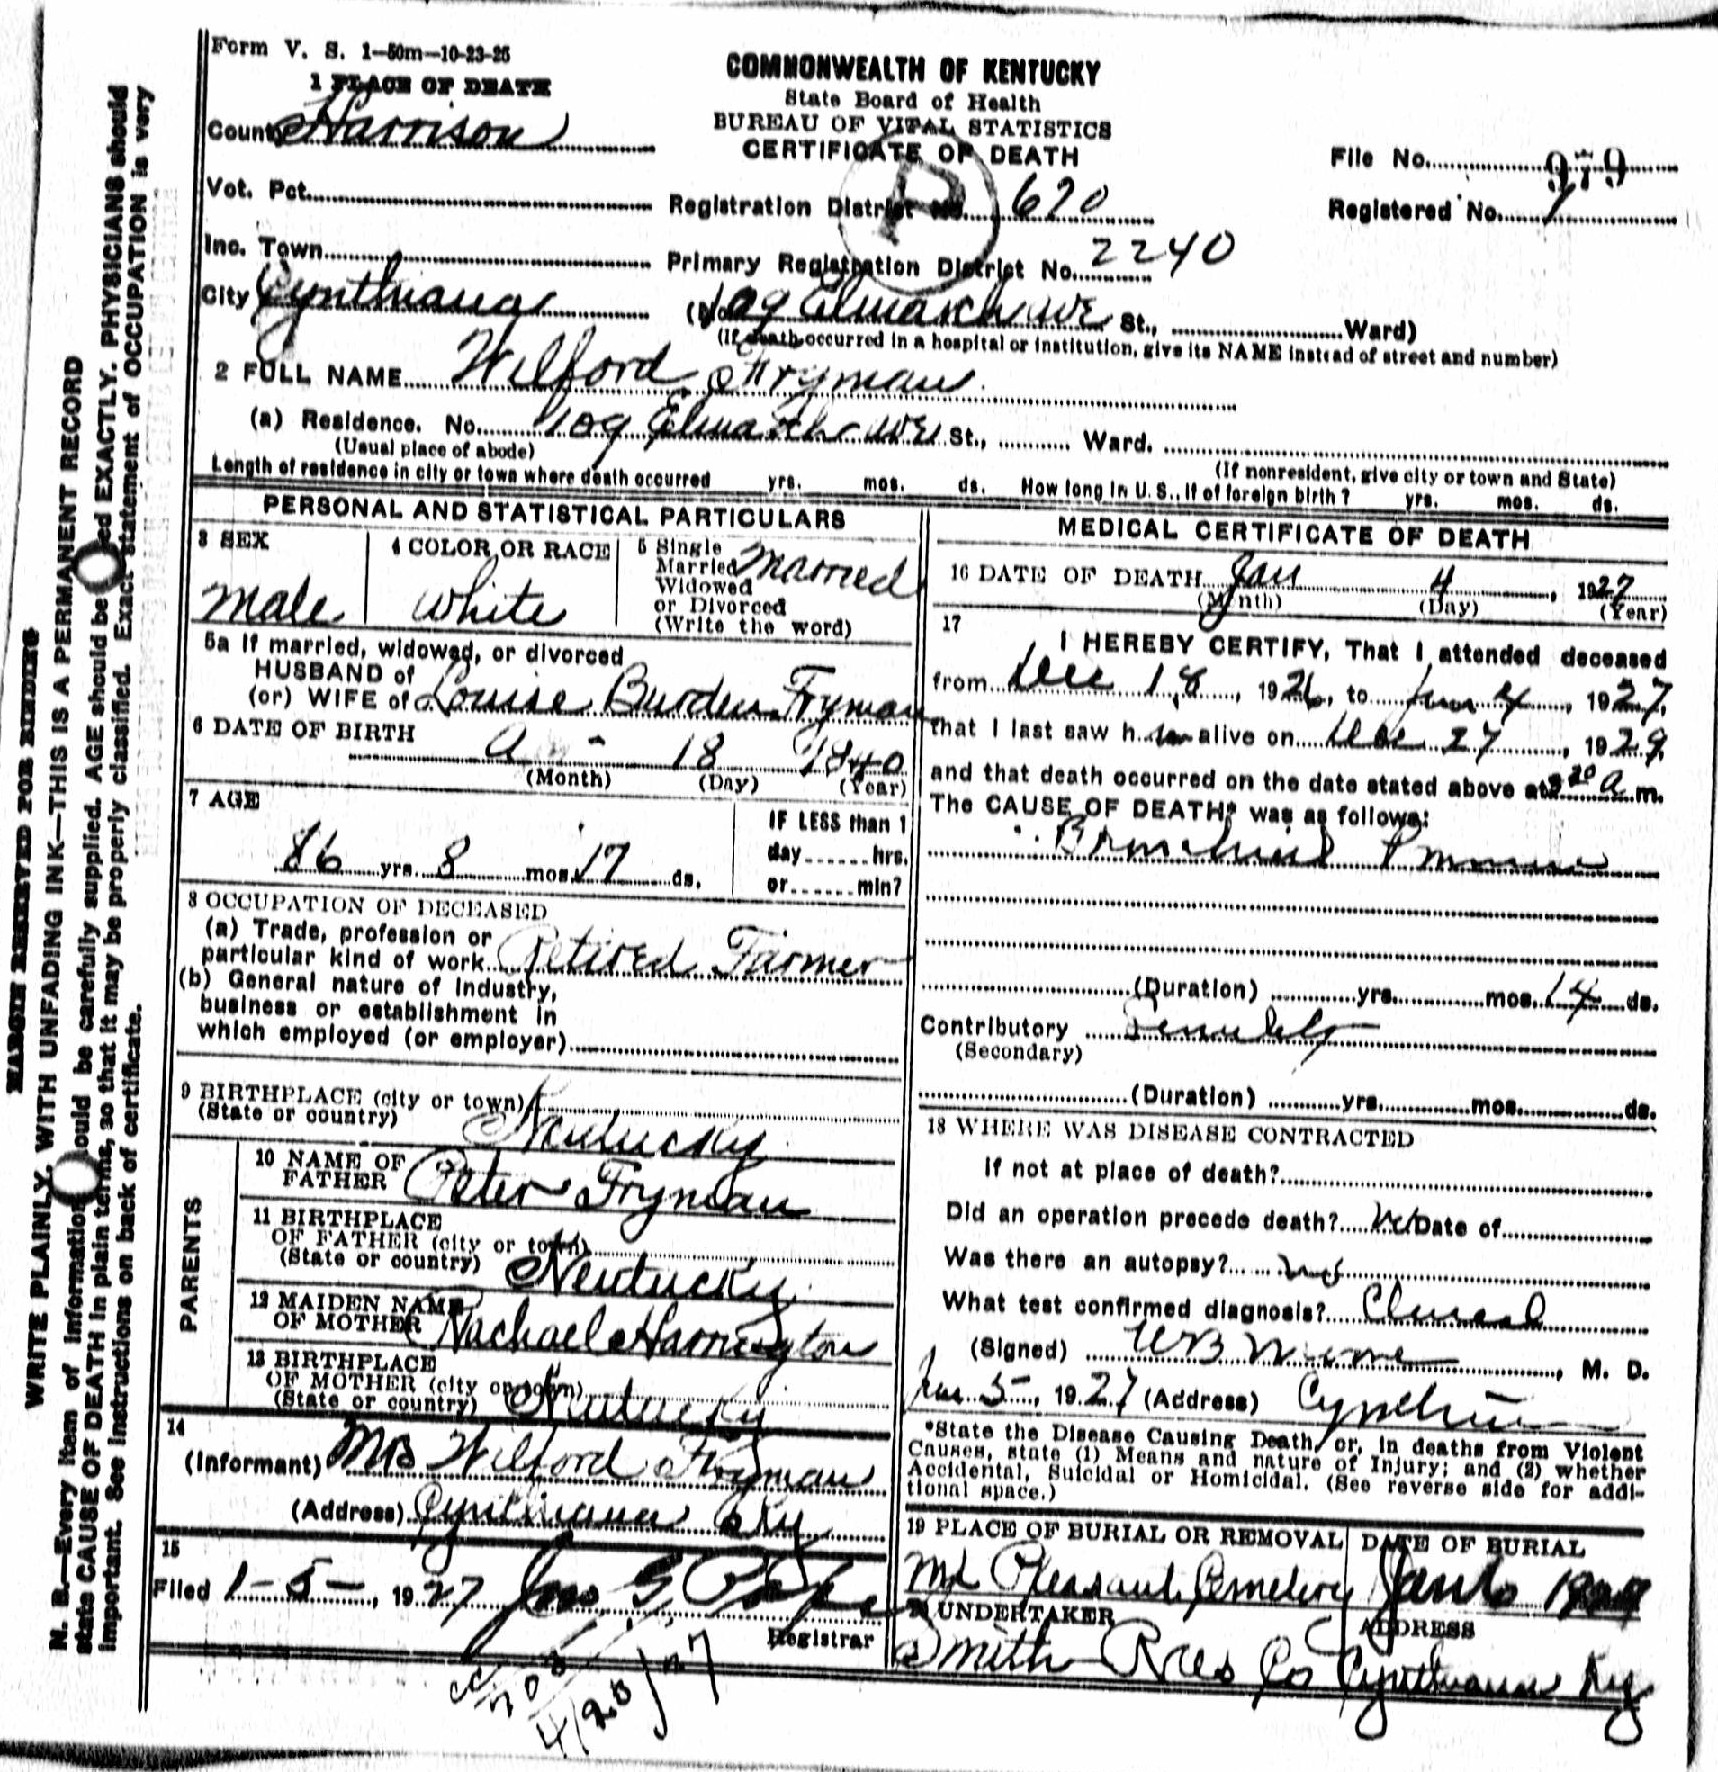 Form V. S. 1—50m—10-23-25
1 PLACE OF DEATH
COMMONWEALTH OF KENTUCKY
State Board of Health
BUREAU OF VITAL STATISTICS
CERTIFICATE OF DEATH
County Harrison
File No. 979
Vot. Pct.
Registration District No. 670
Registered No. 1
Inc. Town
Primary Registration District No. 2240
City Cynthiana
(No. 109 Elmarch ave St., Ward)
(If death occurred in a hospital or institution, give its NAME instead of street and number)
2 FULL NAME Wilford Fryman
(a) Residence. No. 109 Elmarch ave St., Ward.
(Usual place of abode)
(If nonresident, give city or town and State)
Length of residence in city or town where death occurred yrs. mos. ds. How long in U. S., if of foreign birth? yrs. mos. ds.
PERSONAL AND STATISTICAL PARTICULARS
3 SEX
male
4 COLOR OR RACE
white
5 Single
Married
Widowed
or Divorced
(Write the word)
married
5a If married, widowed, or divorced
HUSBAND of
(or) WIFE of Louise Burden Fryman
6 DATE OF BIRTH
18 1840
(Month) (Day) (Year)
7 AGE
86 yrs. 8 mos. 17 ds.
IF LESS than 1
day hrs.
or min?
8 OCCUPATION OF DECEASED
(a) Trade, profession or
particular kind of work Retired Farmer
(b) General nature of Industry,
business or establishment in
which employed (or employer)
9 BIRTHPLACE (city or town)
(State or country) Kentucky
PARENTS
10 NAME OF
FATHER Peter Fryman
11 BIRTHPLACE
OF FATHER (city or town)
(State or country) Kentucky
12 MAIDEN NAME
OF MOTHER Rachael Harrington
13 BIRTHPLACE
OF MOTHER (city or town)
(State or country) Kentucky
14
(Informant) Mrs Wilford Fryman
(Address) Cynthiana Ky
15
Filed 1-5-, 1927 Jno G
Registrar
MEDICAL CERTIFICATE OF DEATH
16 DATE OF DEATH Jan 4, 1927
(Month) (Day) (Year)
17
I HEREBY CERTIFY, That I attended deceased
from Dec 18, 1926, to Jan 4, 1927,
that I last saw him alive on Dec 27, 1929,
and that death occurred on the date stated above at 20 a m.
The CAUSE OF DEATH* was as follows:
Bronchial
(Duration) yrs. mos. 14 ds.
Contributory
(Secondary)
(Duration) yrs. mos. ds.
18 WHERE WAS DISEASE CONTRACTED
If not at place of death?
Did an operation precede death? no Date of
Was there an autopsy? no
What test confirmed diagnosis? Clinical
(Signed) WB, M. D.
Jan 5-, 1927 (Address) Cynthiana
*State the Disease Causing Death, or, in deaths from Violent
Causes, state (1) Means and nature of Injury; and (2) whether
Accidental, Suicidal or Homicidal. (See reverse side for addi-
tional space.)
19 PLACE OF BURIAL OR REMOVAL
Mt Pleasant Cemetery
DATE OF BURIAL
Jan 6
UNDERTAKER
Smith Rees Co
ADDRESS
Cynthiana Ky
4/20/27
MARGIN RESERVED FOR BINDING
WRITE PLAINLY, WITH UNFADING INK—THIS IS A PERMANENT RECORD
N. B.—Every item of information should be carefully supplied. AGE should be stated EXACTLY. PHYSICIANS should
state CAUSE OF DEATH in plain terms, so that it may be properly classified. Exact statement of OCCUPATION is very
important. See instructions on back of certificate.